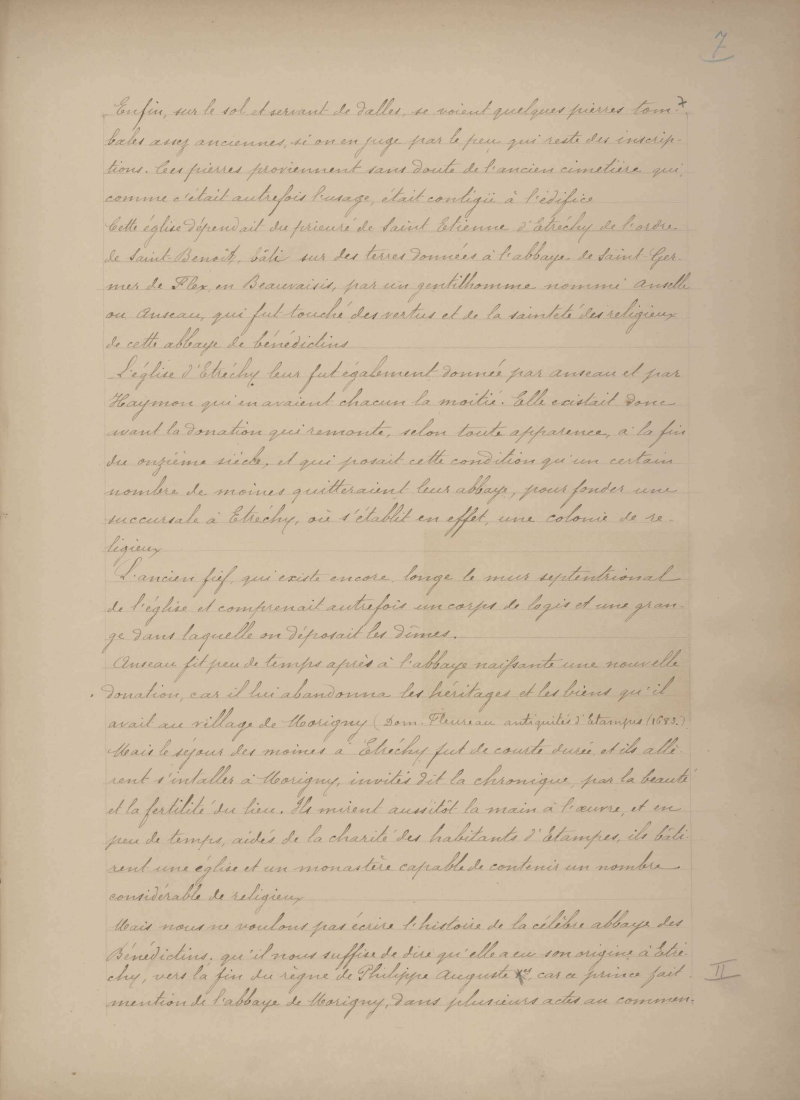 7
7
Enfin, sur le sol et servant de dalles, se voient quelques pierres tom-
bales assez anciennes, si on en juge par le peu qui reste des inscrip-
tions. Ces pierres proviennent sans doute de l'ancien cimetière qui,
comme c'était autrefois l'usage, était contigü à l'édifice
Cette église dépendait du prieuré de Saint Etienne d'Etréchy de l'ordre
de Saint-Benoît, bâti sur des terres données à l'abbaye de Saint Ger-
mer de Flex, en Beauvaisis, par un gentilhomme nommé Anselle
ou Anseau, qui fut touché des vertus et de la sainteté des religieux
de cette abbaye de bénédictins
L'église d'Etréchy leur fut également donnée par Anseau et par
Haymon qui en avaient chacun la moitié. Elle existait donc
avant la donation qui remonte, selon toute apparence, à la fin
du onzième siècle, et qui posait cette condition qu'un certain
nombre de moines quitteraient leur abbaye, pour fonder une
succursale à Etréchy, où s'établit en effet, une colonie de re-
ligieux
L'ancien fief, qui existe encore, longe le mur septentrional
de l'église et comprenait autrefois un corps de logis et une gran-
ge dans laquelle on déposait les dîmes.
Anseau fit peu de temps après à l'abbaye naissante une nouvelle
donation, car il lui abandonna les héritages et les biens qu'il
avait au village de Morigny (Dom. Fleureau antiquités d'Etampes (1683.)
Mais le séjour des moines à Etréchy fut de courte durée, et ils allè-
rent s'intaller à Morigny, invités dit la chronique, par la beauté
et la fertilité du lieu. Ils mirent aussitôt la main à l'œuvre, et en
peu de temps, aidés de la charité des habitants d'Etampes, ils bâti-
rent une église et un monastère capable de contenir un nombre
considérable de religieux
Mais nous ne voulons pas écrire l'histoire de la célèbre abbaye des
Bénédictins, qu'il nous suffise de dire qu'elle a eu son origine à Etré-
chy, vers la fin du règne de Philippe Auguste, car ce prince fait
II
mention de l'abbaye de Morigny, dans plusieurs actes au commen-